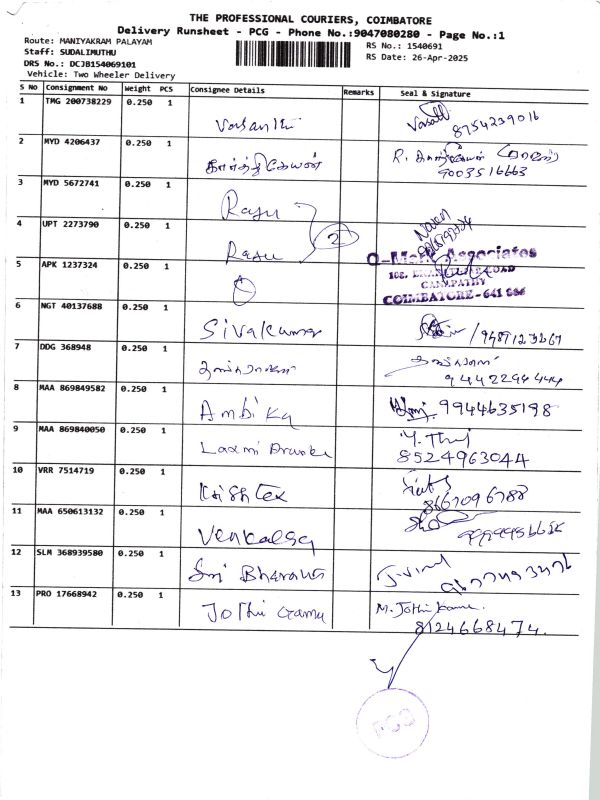 THE PROFESSIONAL COURIERS, COIMBATORE
Delivery Runsheet - PCG - Phone No.:9047080280 - Page No.:1
Route: MANIYAKRAM PALAYAM
Staff: SUDALIMUTHU
DRS No.: DCJB154069101
Vehicle: Two Wheeler Delivery
RS No.: 1540691
RS Date: 26-Apr-2025
S No Consignment No Weight PCS Consignee Details Remarks Seal & Signature
1 TMG 200738229 0.250 1
Vasanthi 8754239016
2 MYD 4206437 0.250 1
கார்த்திகேயன் R. கார்த்திகேயன் 9003516663
3 MYD 5672741 0.250 1
Raju
4 UPT 2273790 0.250 1
Raju 2 Naveen
5 APK 1237324 0.250 1
Associates
ROAD
GANAPATHY
COIMBATORE - 641 006
6 NGT 40137688 0.250 1
Sivakumar
7 DDG 368948 0.250 1
9442294444
8 MAA 869849582 0.250 1
Ambika 9944635198
9 MAA 869840050 0.250 1
Laxmi 8524963044
10 VRR 7514719 0.250 1
Krish Tex 8667096788
11 MAA 650613132 0.250 1
12 SLM 368939580 0.250 1
Sri
13 PRO 17668942 0.250 1
Jothi M. Jothi
8124668474.
PCG